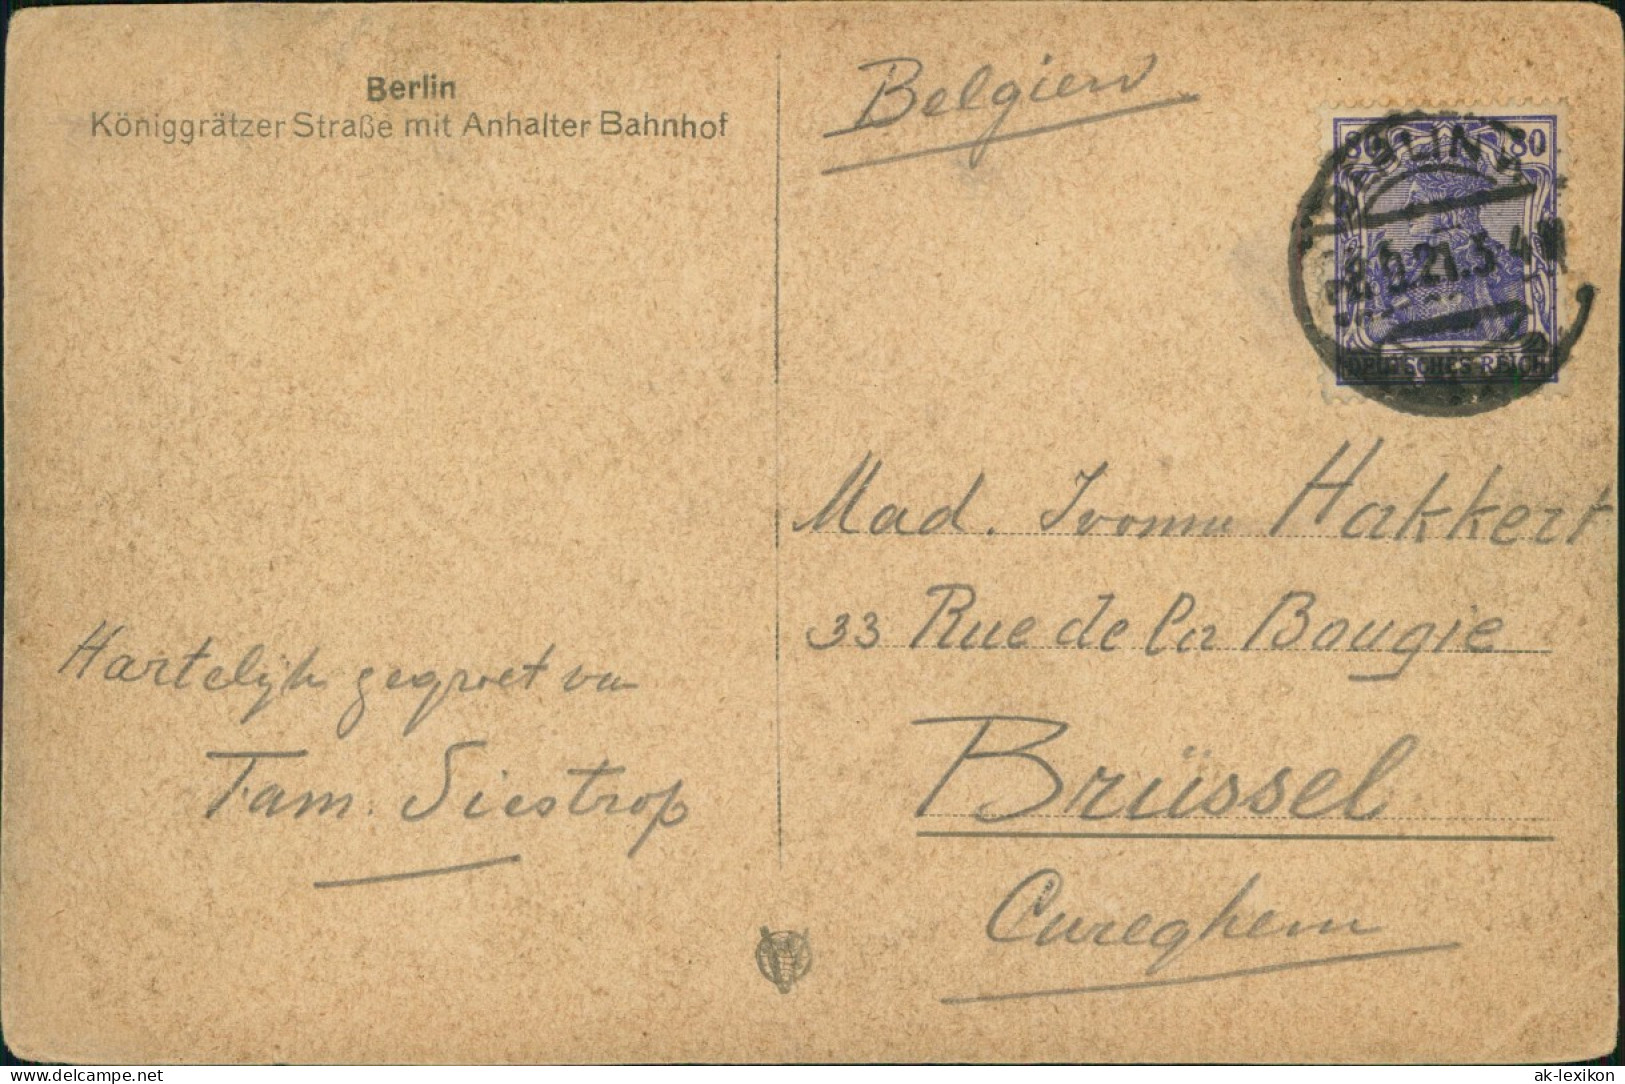 Berlin
Königgrätzer Straße mit Anhalter Bahnhof
Belgien
80 80
BERLIN W
6.21.3-4N
DEUTSCHES REICH
Mad. Ivonne Hakkert
33 Rue de la Bougie
Brüssel
Cureghem
Hartelijk gegroet van
Fam. Siestrop
delcampe.net
ak-lexikon